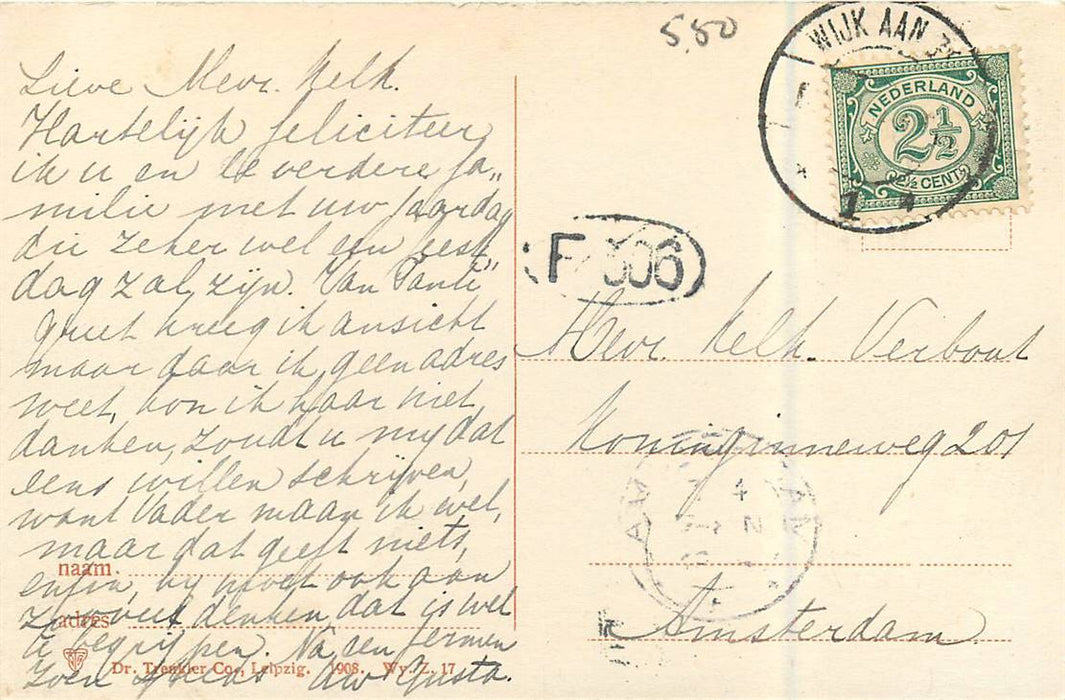 5.50
WIJK AAN ZE
NEDERLAND
2½
2½ CENT
Lieve Mevr. Kelk.
Hartelijk feliciteer
ik u en de verdere fa„
milie met uw jaardag
die zeker wel een feest„
dag zal zijn. Van Tante
Griet kreeg ik ansicht
maar daar ik geen adres
weet, kon ik haar niet
danken, zoudt u mij dat
eens willen schrijven,
want Vader maan ik wel,
maar dat geeft niets,
enfin, hij moet ook aan
zooveel denken, dat is wel
te begrijpen. Na een ferme
zoen Uw Gusta.
F 306
Mevr. Kelk. Verbout
Koninginneweg 201
Amsterdam
naam
adres
Dr. Trenkler Co., Leipzig. 1908. Wy. Z. 17